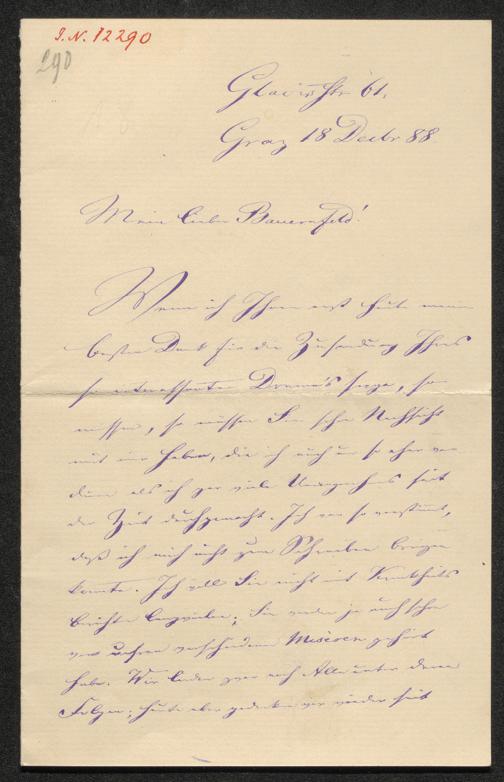 I.N. 12290
290
Glacisstr 61.
Graz 18 Decbr 88
Mein lieber Bauernfeld!
Wenn ich Ihnen erst heute meinen
besten Dank für die Zusendung Ihres
so interessanten Drama's sage, so
müssen Sie schon Nachsicht
mit mir haben, die ich auch um so eher ver
diene als ich gar viele Unangenehmes seit
der Zeit durchgemacht. Ich war so verstimmt,
daß ich mich nicht zum Schreiben bringen
konnte. Ich will Sie nicht mit Krankheits
berichten langweilen; Sie werden ja auch schon
von unseren verschiedenen Misèren gehört
haben. Wir leiden zwar noch Alle unter deren
Folgen; heute aber gedenken wir wieder seit